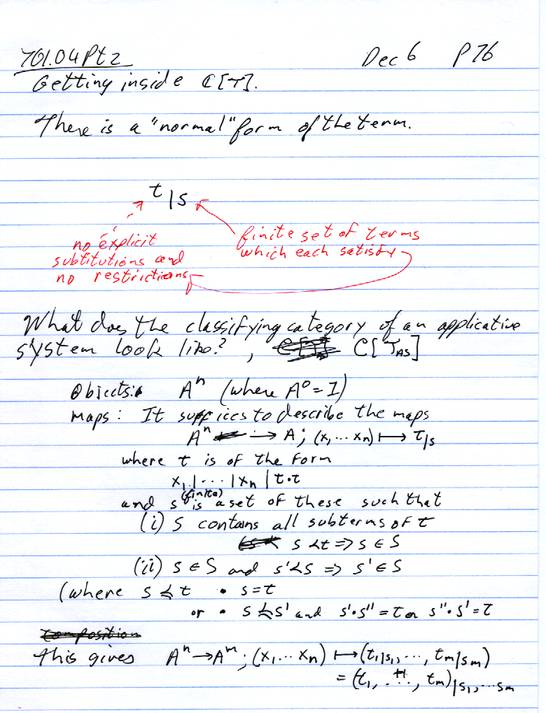 701.04 Pt 2 Dec 6 P76
Getting inside ℂ[T].
There is a "normal" form of the term.
t|s
no explicit
substitutions and
no restrictions
finite set of terms
which each satisfy
What does the classifying category of an applicative
system look like?, C[T_AS]
Objects: A^n (where A^0 = I)
Maps: It suffices to describe the maps
A^n → A; (x_1 ... x_n) ↦ t|s
where t is of the form
x_1 | ... | x_n | t•t
and s is a (finite) set of these such that
(i) S contains all subterms of t
s ≤ t ⇒ s ∈ S
(ii) s ∈ S and s' ≤ s ⇒ s' ∈ S
(where s ≤ t • s = t
or • s ≤ s' and s'•s'' = t or s''•s' = t
Composition
This gives A^n → A^m; (x_1 ... x_n) ↦ (t_1|s_1, ..., t_m|s_m)
= (t_1, ..., t_m)|s_1, ... s_m